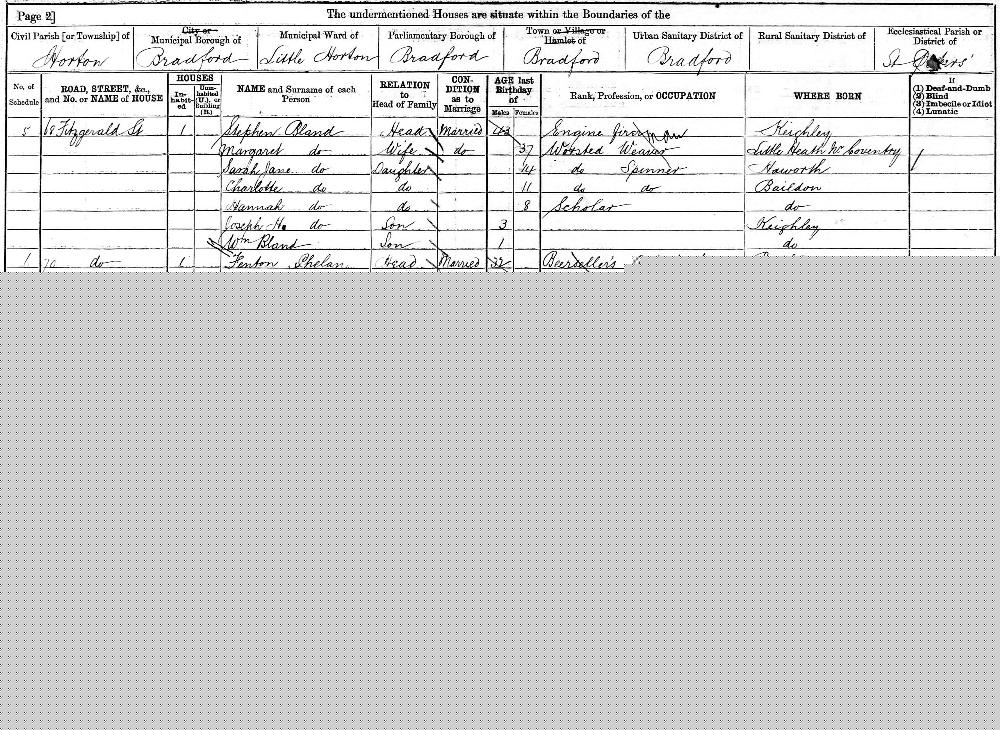 Page 2]
The undermentioned Houses are situate within the Boundaries of the
Civil Parish [or Township] of City or Municipal Borough of Municipal Ward of Parliamentary Borough of Town or Village or Hamlet of Urban Sanitary District of Rural Sanitary District of Ecclesiastical Parish or District of
Horton Bradford Little Horton Bradford Bradford Bradford St
No. of Schedule ROAD, STREET, &c., and No. or NAME of HOUSE HOUSES Inhabited Uninhabited (U.), or Building (B.) NAME and Surname of each Person RELATION to Head of Family CONDITION as to Marriage AGE last Birthday of Males Females Rank, Profession, or OCCUPATION WHERE BORN If (1) Deaf-and-Dumb (2) Blind (3) Imbecile or Idiot (4) Lunatic
5 68 Fitzgerald St 1 Stephen Bland Head Married 43 Engine fireman Keighley
Margaret do Wife do 37 Worsted Weaver Little Heath Nr Coventry
Sarah Jane do Daughter 14 do Spinner Haworth
Charlotte do do 11 do do Baildon
Hannah do do 8 Scholar do
Joseph H. do Son 3 Keighley
Wm Bland Son 1 do
1 70 do 1 Fenton Phelan Head Married 32 Beerseller's